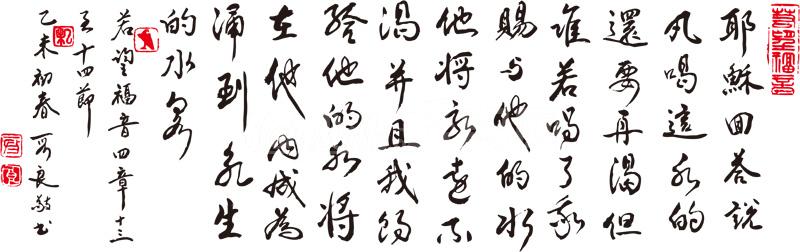 耶穌回答說
凡喝這水的
還要再渴但
誰若喝了我
賜與他的水
他將永遠不
渴并且我賜
給他的水將
在他內成為
涌到永生
的水泉
若望福音四章十三
至十四節
乙未初春良敬書